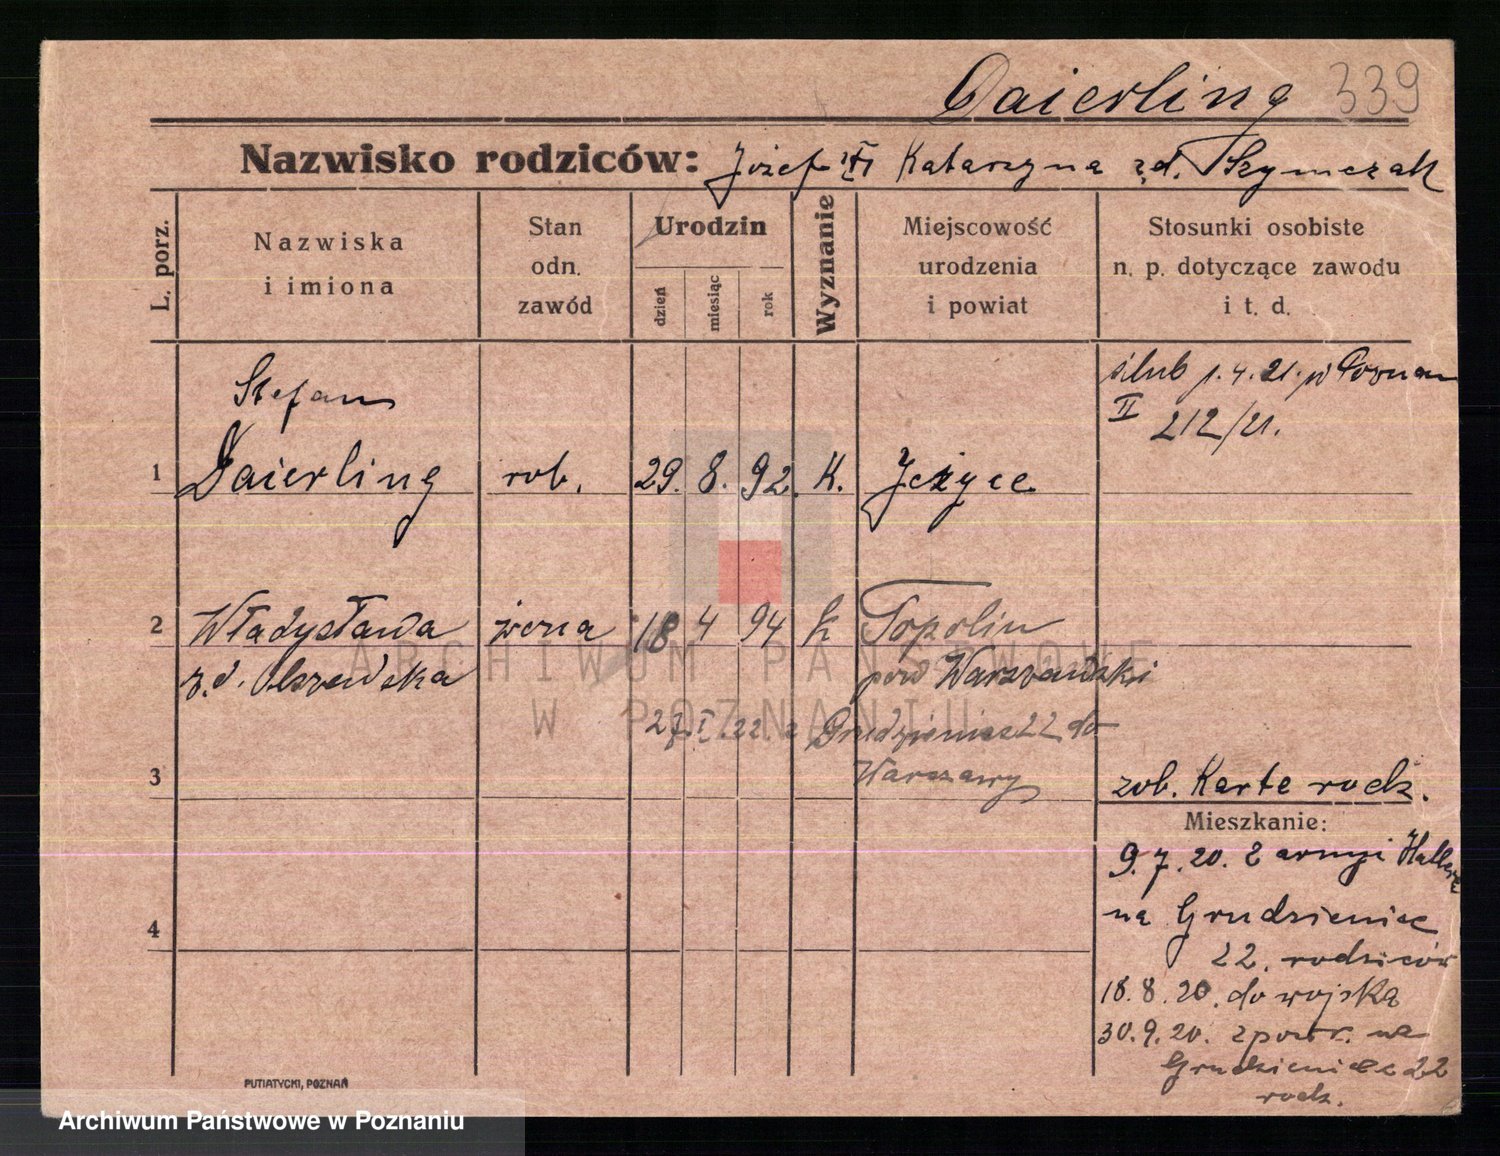 Daierling 339
Nazwisko rodziców: Józef i Katarzyna z d. Szymczak
L. porz.
Nazwiska
i imiona
Stan
odn.
zawód
Urodzin
dzień
miesiąc
rok
Wyznanie
Miejscowość
urodzenia
i powiat
Stosunki osobiste
n. p. dotyczące zawodu
i t. d.
Stefan
1 Daierling rob. 29. 8. 92. K. Jeżyce
ślub 1.4.21. w Poznan
II 212/21.
2 Władysława żona 18 4 94 k Topolin
z.d. Olszewska pow Warszawski
27.I.22. z Grudzieniec 22 do
Warszawy
3
zob. Karte rodz.
Mieszkanie:
9.7.20. z armji Hallera
na Grudzieniec
22. rodziców
18.8.20. do wojska
30.9.20. z powr. na
Grudzieniec 22
rodz.
4
PUTIATYCKI, POZNAŃ
ARCHIWUM PAŃSTWOWE
W POZNANIU
Archiwum Państwowe w Poznaniu